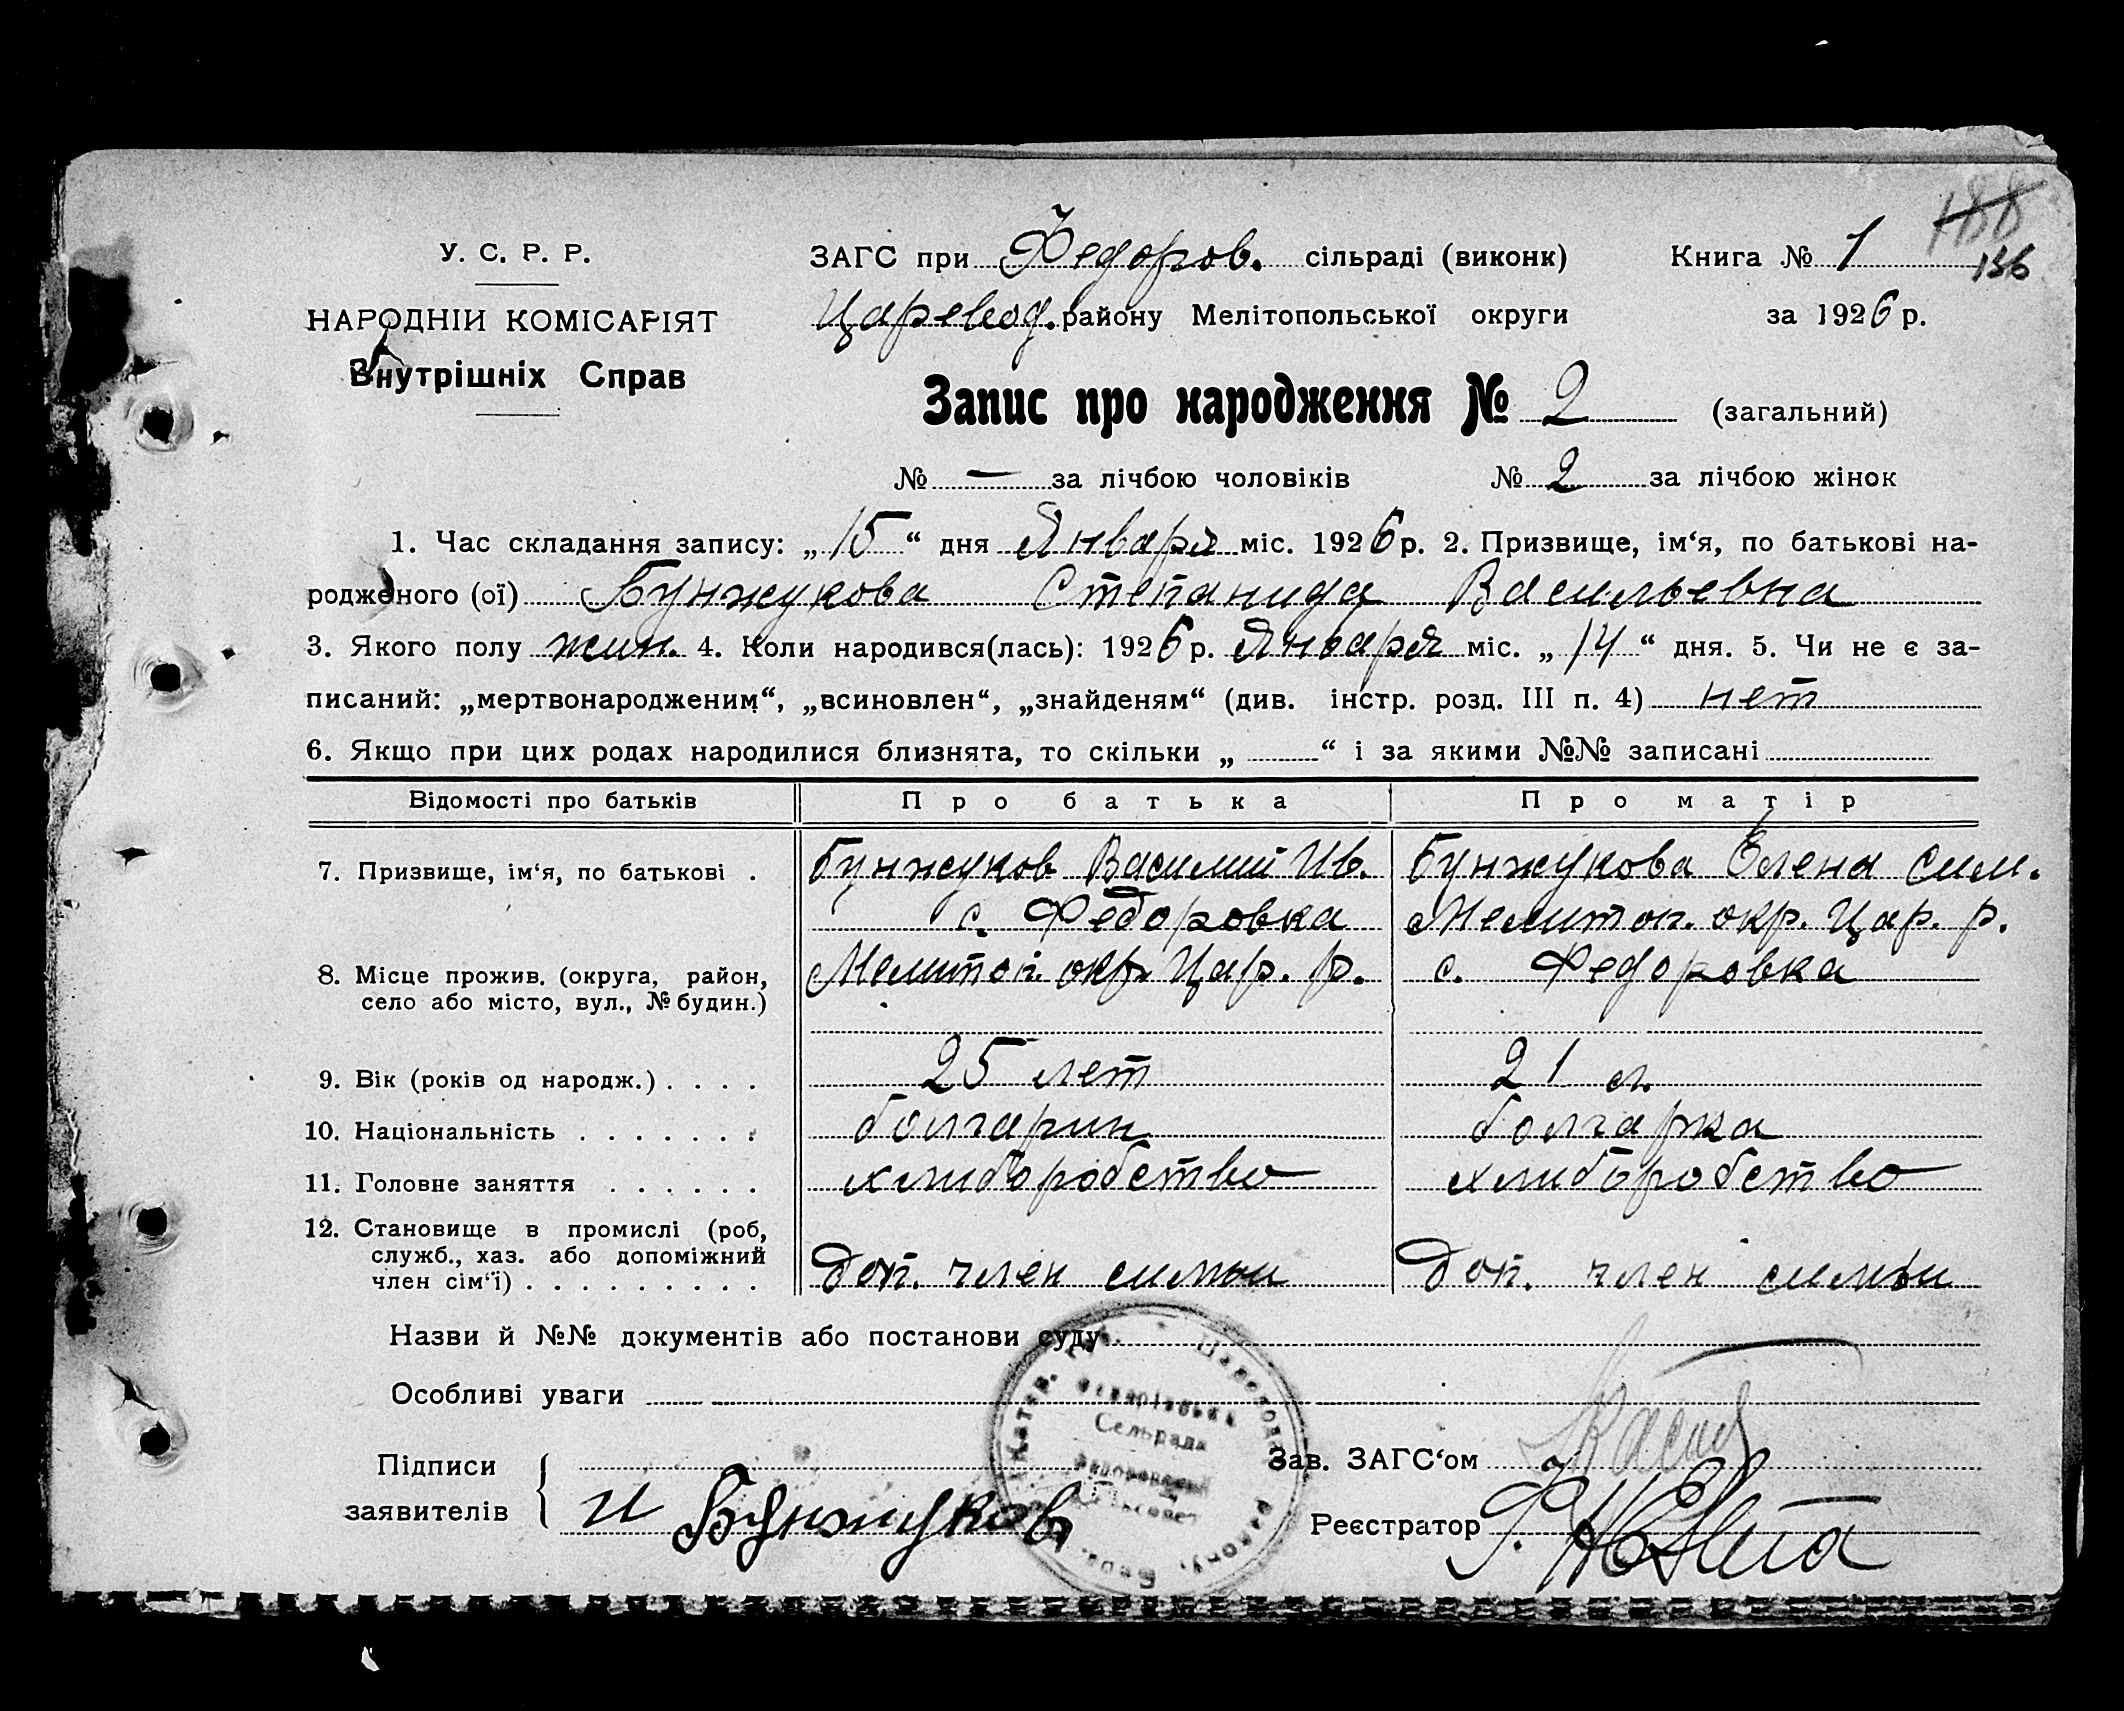 188
У. С. Р. Р.
ЗАГС при Федоров. сільраді (виконк)
Книга № 1
136
НАРОДНІЙ КОМІСАРІЯТ
Царевод. району Мелітопольської округи
за 1926 р.
Внутрішніх Справ
Запис про народження № 2 (загальний)
№ — за лічбою чоловіків № 2 за лічбою жінок
1. Час складання запису: „15“ дня Января міс. 1926 р. 2. Призвище, ім‘я, по батькові на-
родженого (ої) Бунжукова Степанида Васильевна
3. Якого полу жин. 4. Коли народився(лась): 1926 р. Января міс. „14“ дня. 5. Чи не є за-
писаний: „мертвонародженим“, „всиновлен“, „знайденям“ (див. інстр. розд. III п. 4) нет
6. Якщо при цих родах народилися близнята, то скільки „ “ і за якими №№ записані
Відомості про батьків
Про батька
Про матір
7. Призвище, ім‘я, по батькові .
Бунжуков Василий Ив.
Бунжукова Елена Сим.
с. Федоровка
Мелитоп. окр. Цар. р.
8. Місце прожив. (округа, район,
село або місто, вул., № будин.)
Мелитоп. окр. Цар. р.
с. Федоровка
9. Вік (років од народж.) . . . .
25 лет
21 л.
10. Національність . . . . . . .
болгарин
болгарка
11. Головне заняття . . . . . .
хлиборобство
хлиборобство
12. Становище в промислі (роб,
служб., хаз. або допоміжний
член сім‘ї) . . . . . . . . .
Доп. член симьи
Доп. член симьи
Назви й №№ документів або постанови суду
Особливі уваги
Сельрада
Підписи
заявителів
и Бунжуков
Зав. ЗАГС‘ом
Реєстратор